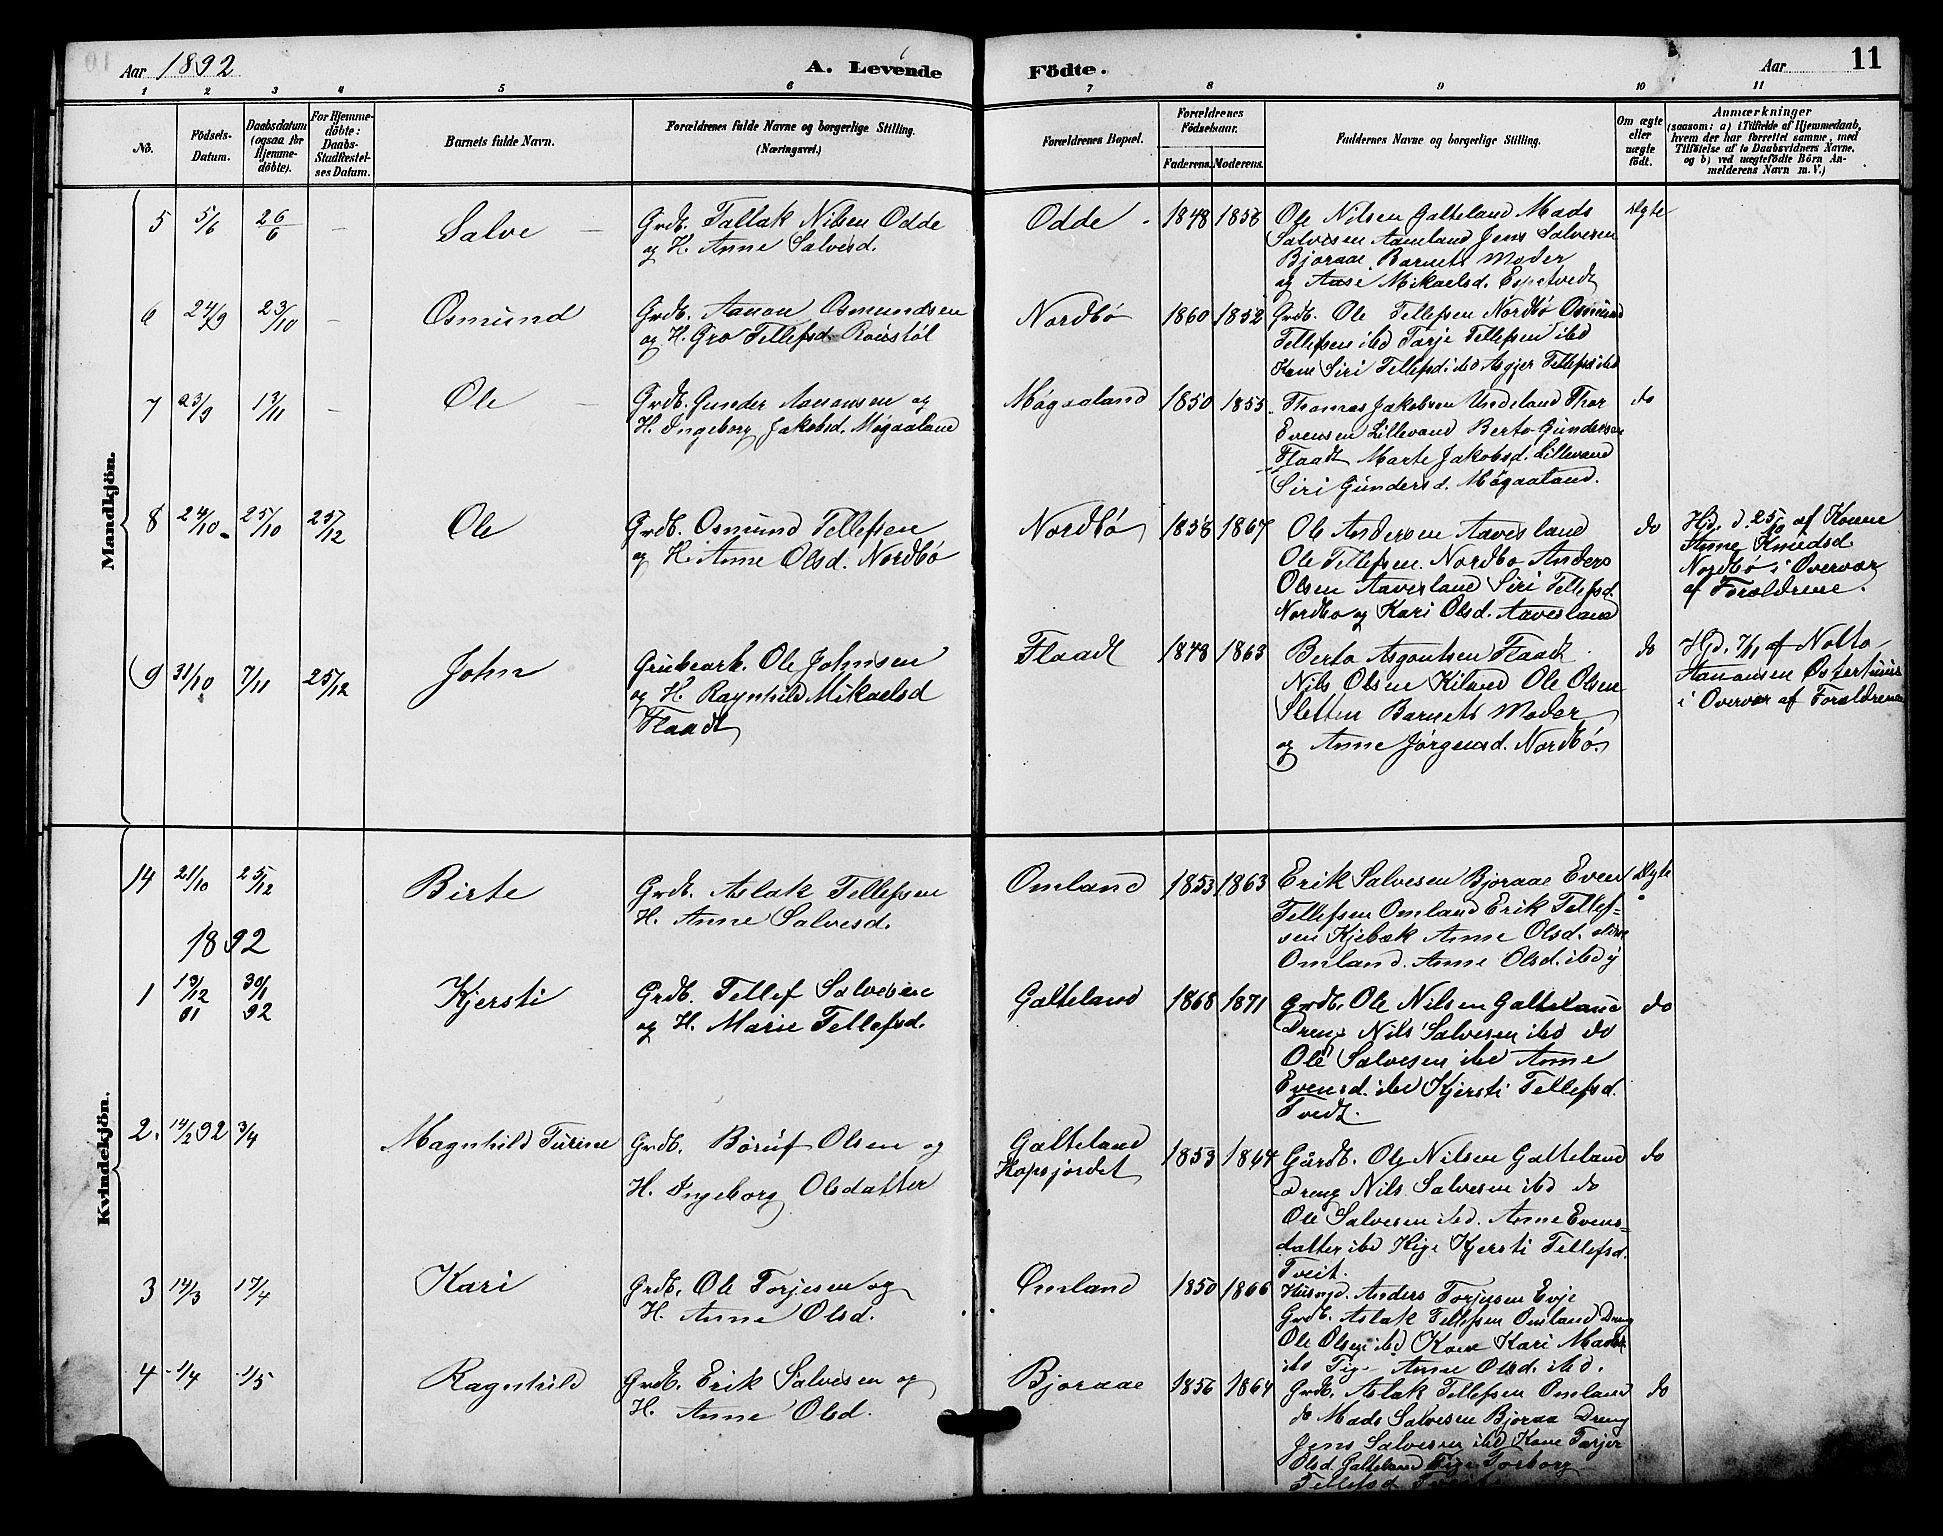 Aar 1892
A. Levende Födte.
Aar 11
1 2 3 4 5 6 7 8 9 10 11
No.
Födsels-Datum.
Daabsdatum (ogsaa for Hjemme-döbte).
For Hjemme-döbte: Daabs-Stadfæstel-ses Datum.
Barnets fulde Navn.
Forældrenes fulde Navne og borgerlige Stilling. (Næringsvei.)
Forældrenes Bopæl.
Forældrenes Födselsaar.
Faderens. Moderens.
Faddernes Navne og borgerlige Stilling.
Om ægte eller uægte födt.
Anmærkninger
(saasom: a) i Tilfælde af Hjemmedaab,
hvem der har forrettet samme, med
Tilföielse af to Daabsvidners Navne,
og b) ved uægtefödte Börn An-
melderens Navn m. V.)
Mandkjön.
5 5/6 26/6 – Salve –
Grdb. Tallak Nilsen Odde
og H. Anne Salvesd.
Odde 1848 1856
Ole Nilsen Galteland Mads
Salvesen Aamland Jens Salvesen
Bjoraae Barnets Moder
og Aase Mikaelsd. Espetvedt
Ægte
6 24/9 23/10 – Osmund
Grdb. Aanon Osmundsen
og H. Gro Tellefsd. Røiestøl
Nordbø 1860 1852
Grdb. Ole Tellefsen Nordbø Osmund
Tellefsen ibd Tarje Tellefsen ibd
Kone Siri Tellefsd ibd Asgjer Tellefsd ibd
7 23/9 13/11 – Ole –
Grdb. Gunder Aanonsen og
H. Ingeborg Jakobsd. Møgaaland
Møgaaland 1850 1855
Thomas Jakobsen Undeland Thor
Evensen Lillevand Berto Gundersen
Flaadt Marte Jakobsd. Lillevand
Siri Gundersd. Møgaaland.
do
8 24/10 25/10 25/12 Ole
Grdb. Osmund Tellefsen
og H. Anne Olsd. Nordbø
Nordbø 1858 1867
Ole Andersen Aavesland
Ole Tellefsen Nordbo Anders
Olsen Aavesland Siri Tellefsd.
Nordbo og Kari Olsd. Aavesland
do
Hjd. d. 25/10 af Kone
Anne Knudsd
Nordbø i Overvær
af Forældrene.
9 31/10 7/11 25/12 John
Grubearb. Ole Johnsen
og H. Ragnhild Mikaelsd
Flaadt
Flaadt 1848 1863
Berto Asgoutsen Flaadt
Nils Olsen Kiland Ole Olsen
Sletten Barnets Moder
og Anne Jørgensd. Nordbø.
do
Hjd. 7/11 af Nolto
Aanonsen
i Overvær af Forældrene
Kvindekjön.
14 21/10 25/12 Birte
Grdb. Aslak Tellefsen
H. Anne Salvesd.
Omland 1853 1863
Erik Salvesen Bjoraae Even
Tellefsen Omland Erik Tellef=
sen Kjebæk Anne Olsd.
Omland. Anne Olsd. ibd
Ægte
1892
1 13/12 91 30/1 92 Kjersti
Grdb. Tellef Salvesen
og H. Marie Tellefsd.
Galteland 1868 1871
Grdb. Ole Nilsen Galteland
Dreng Nils Salvesen ibd do
Ole Salvesen ibd Anne
Evensd. ibd Kjersti Tellefsd.
Tvedt.
do
2. 14/2 92 3/4 Magnhild Turine
Grdb. Børuf Olsen og
H. Ingeborg Olsdatter
Galteland
Hopsjordet 1853 1864
Gardb. Ole Nilsen Galteland
Dreng Nils Salvesen ibd do
Ole Salvesen ibd. Anne Evens-
datter ibd Pige Kjersti Tellefsd.
Tveit.
do
3 14/3 17/4 Kari
Grdb. Ole Torjesen og
H. Anne Olsd.
Omland 1850 1866
Husmd. Anders Torjusen Evje
Grdb. Aslak Tellefsen Omland Dreng
Ole Olsen ibd Kone Kari Madsd.
ibd Pige Anne Olsd. ibd.
4 1/4 1/5 Ragnhild
Grdb. Erik Salvesen og
H. Anne Olsd.
Bjoraae 1856 1864
Grdb. Aslak Tellefsen Omland
do Mads Salvesen Bjoraa Dreng
Jens Salvesen ibd Kone Torjer
Olsd. Galteland Pige Torborg
Tellefsd
do